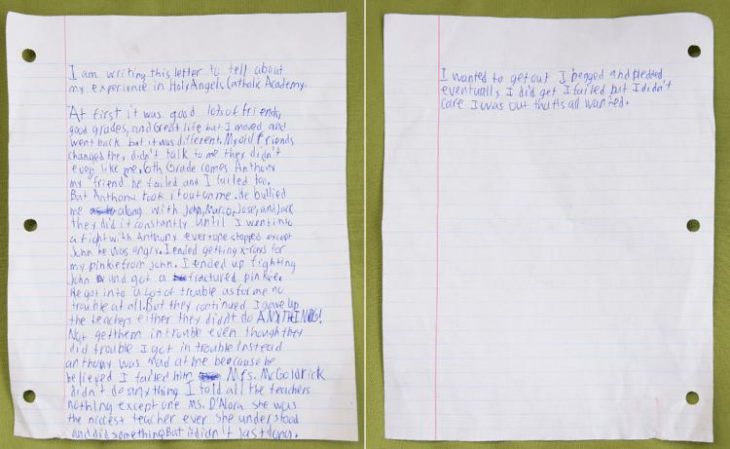 I am writing this letter to tell about
my experience in Holy Angels Catholic Academy.
At first it was good lots of friends,
good grades, and Great life but I moved and
went back but it was different. My old friends
changed they didn't talk to me they didn't
even like me. 6th Grade comes Anthony
my friend he failed and I failed too.
But Anthony took it out on me. He bullied
me along with John, Marco, Jose, and Jack
they did it constantly until I went into
a fight with Anthony everyone stopped except
John he was angry. I ended getting x-rays for
my pinkie from John. I ended up fighting
John and got a fractured pinkie.
He got into a lot of trouble as for me no
trouble at all. But they continued I gave up
the teachers either they didn't do ANYTHING!
Not get them in trouble even though they
did trouble I got in trouble instead
anthony was mad at me because he
believed I failed him Mrs. McGoldrick
didn't do anything I told all the teachers
nothing except one Ms. D'Alora she was
the nicest teacher ever she understood
and did something But it didn't last long.
I wanted to get out I begged and pleded
eventually I did get I failed but I didn't
care I was out thats all wanted.